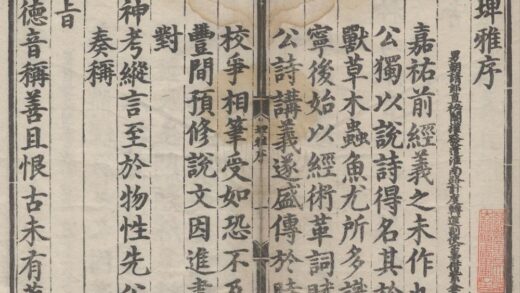 埤雅序
嘉祐前經義之未作也
公獨以說詩得名其於
獸草木蟲魚尤所多識
寧後始以經術革詞賦
公詩講義遂盛傳於時
埤雅序
校爭相筆受如恐不及
豐間預修說文因進書
對
神考縱言至於物性先公
奏稱
旨
德音稱善且恨古未有著